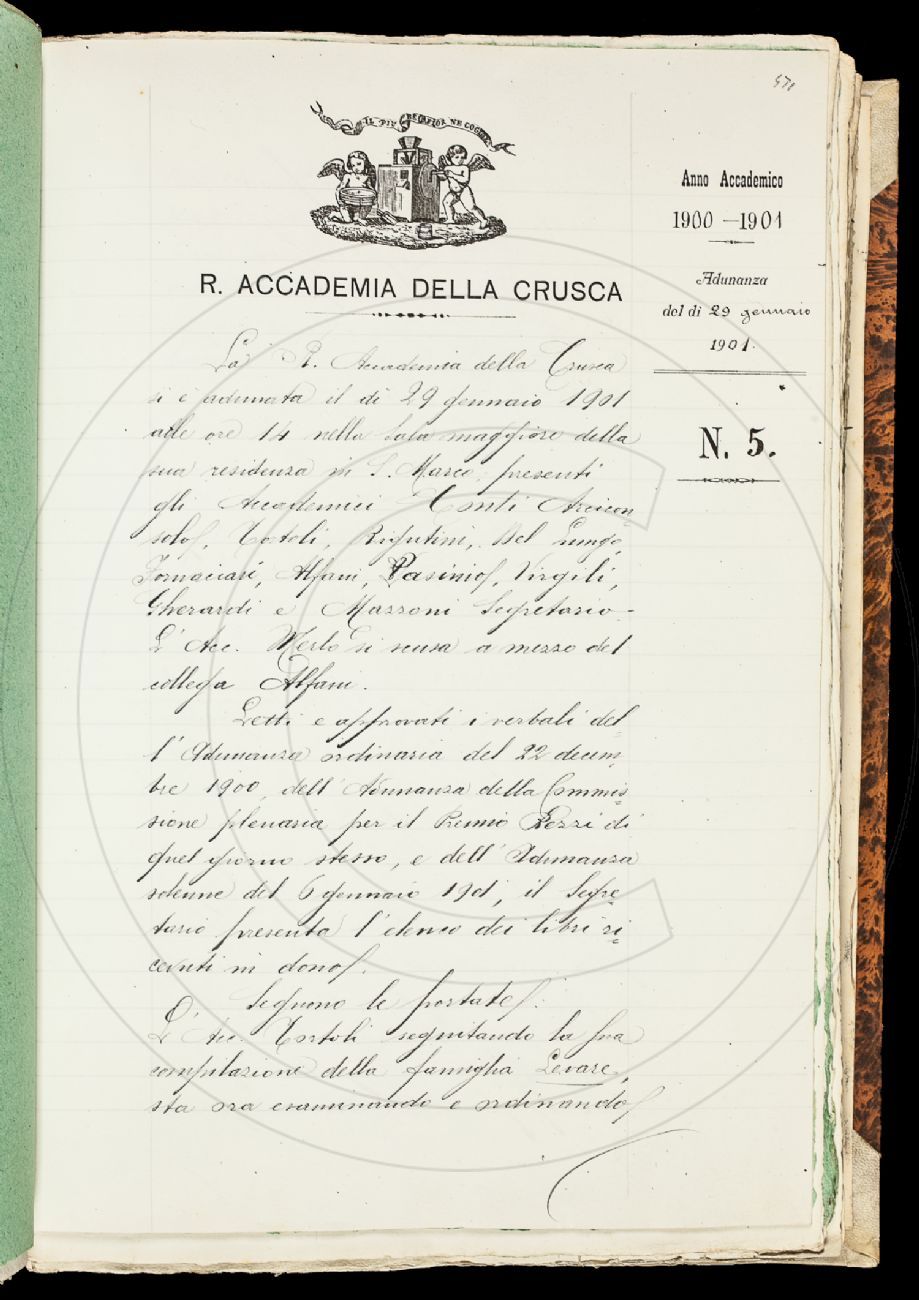 IL PIÙ BEL FIOR NE COGLIE
R. ACCADEMIA DELLA CRUSCA
Anno Accademico
1900 - 1901
Adunanza
del dì 29 gennaio
1901.
N. 5.
La R. Accademia della Crusca
si è adunata il dì 29 gennaio 1901
alle ore 14 nella Sala maggiore della
sua residenza in S. Marco, presenti
gli Accademici Conti Arcicon-
solo, Tortoli, Rigutini, Del Lungo,
Fornaciari, Alfani, Rasinio, Virgili,
Gherardi e Mazzoni Segretario.
L'Acc. Merlo si scusa a mezzo del
collega Alfani.
Letti e approvati i verbali del-
l'Adunanza ordinaria del 22 decem-
bre 1900, dell'Adunanza della Commis-
sione plenaria per il Premio Rezzi di
quel giorno stesso, e dell'Adunanza
solenne del 6 gennaio 1901, il Segre-
tario presenta l'elenco dei libri ri-
cevuti in dono.
Seguono le portate:
L'Acc. Tortoli seguitando la sua
compilazione della famiglia Levare,
sta ora esaminando e ordinando